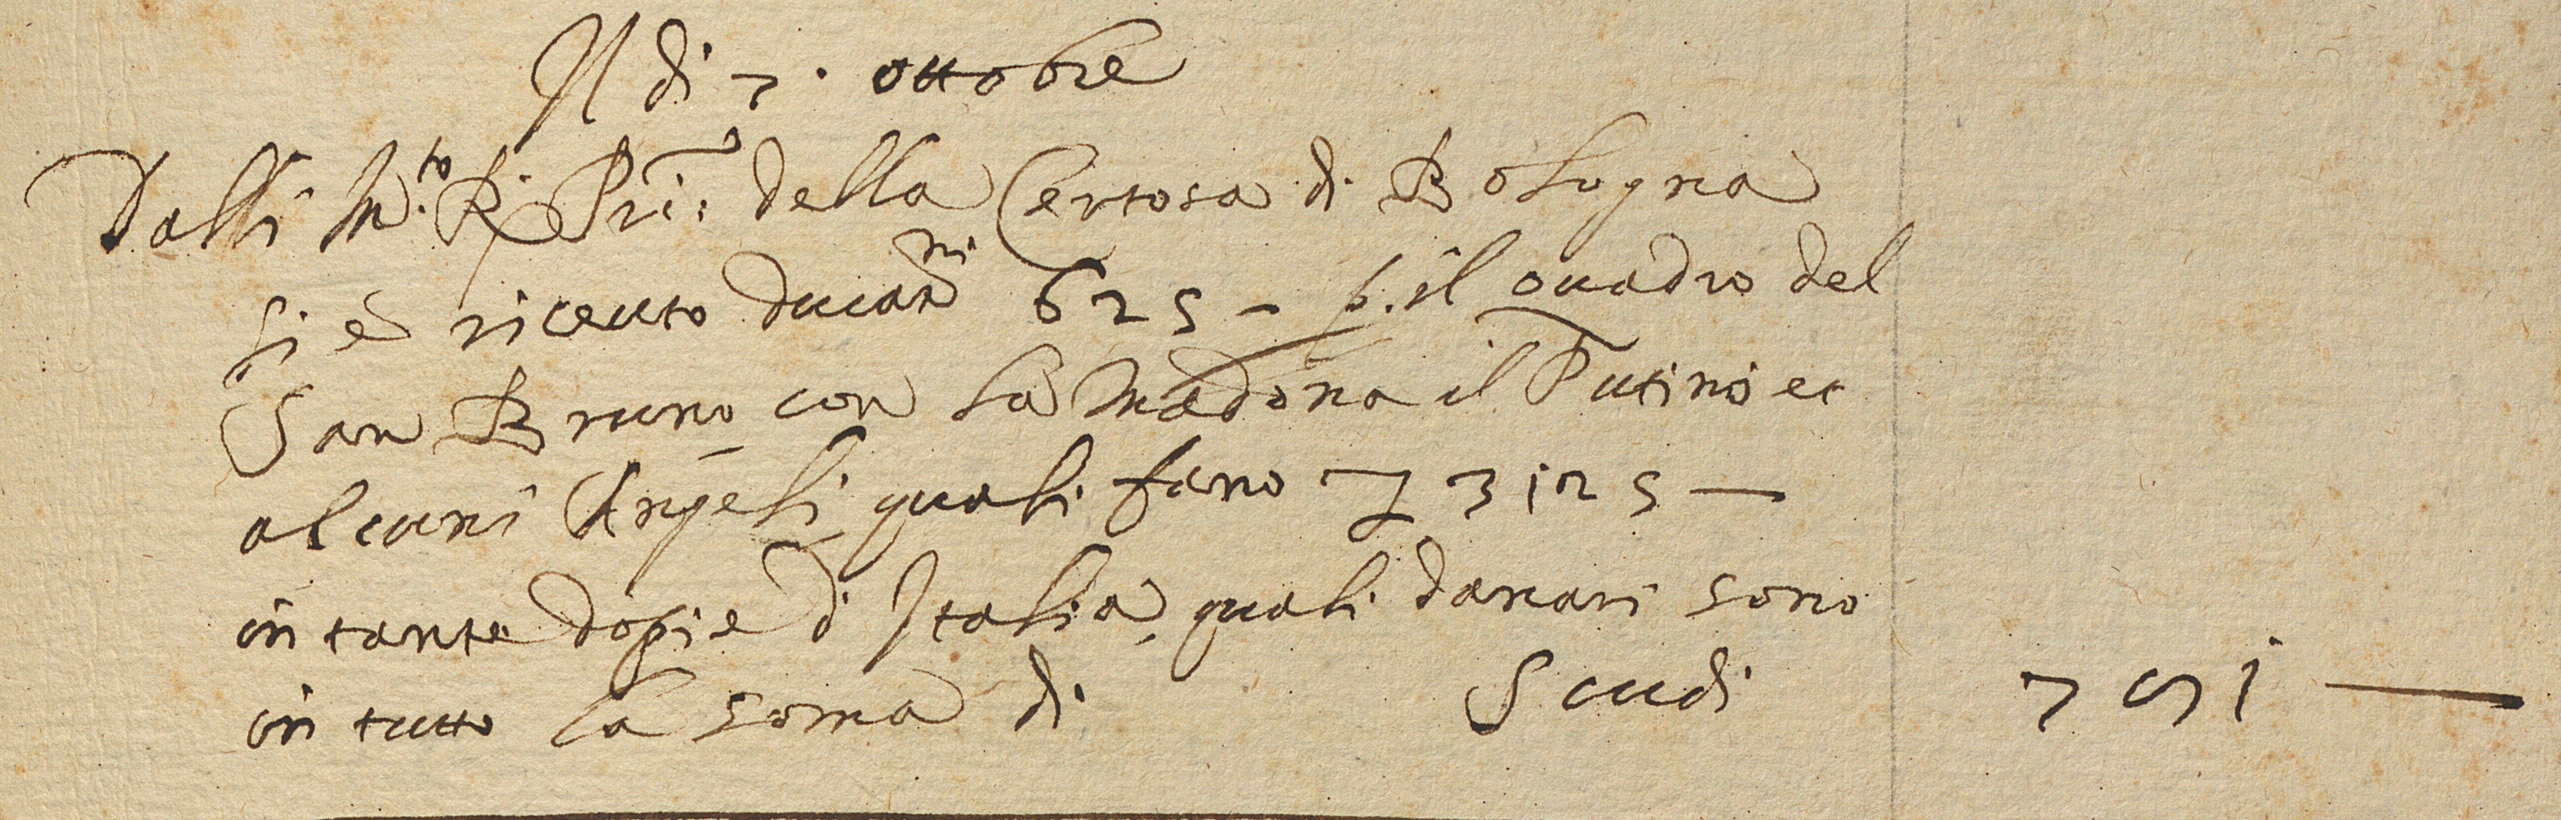 Il di 7. ottobre
Dalli M.to R. Pri: della Certosa di Bologna
si è riceuto ducatni 625 - p. il quadro del
San Bruno con la Madona il Putino et
alcuni Angeli, quali fano L 3125 —
in tante dopie d'Italia, quali danari sono
in tutto la soma di Scudi 751 —